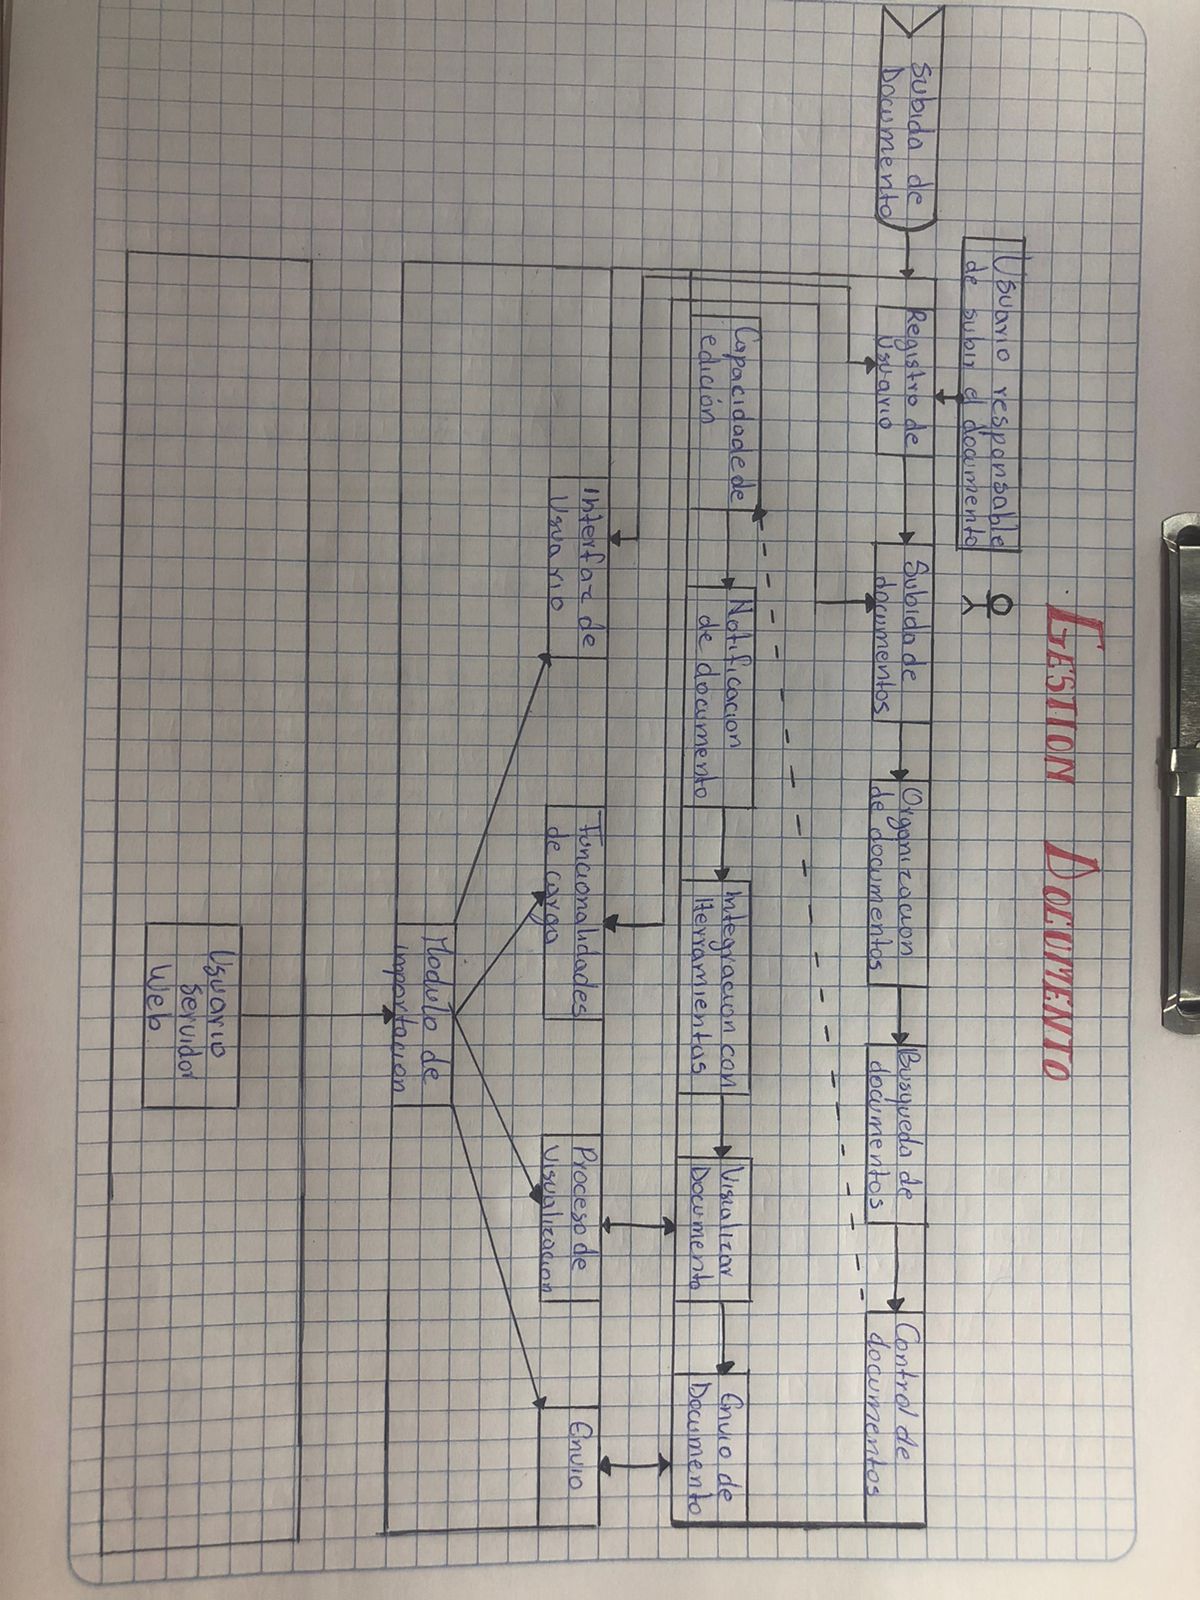 GESTION DOCUMENTO
Usuario responsable
de subir el documento
Subida de
Documento
Registro de
Usuario
Subida de
documentos
Organizacion
de documentos
Busqueda de
documentos
Control de
documentos
Capacidade de
edición
Notificacion
de documento
Integracion con
Herramientas
Visualizar
Documento
Envio de
Documento
Interfaz de
Usuario
Funcionalidades
de carga
Proceso de
Visualizacion
Envio
Modulo de
importacion
Usuario
Servidor
Web